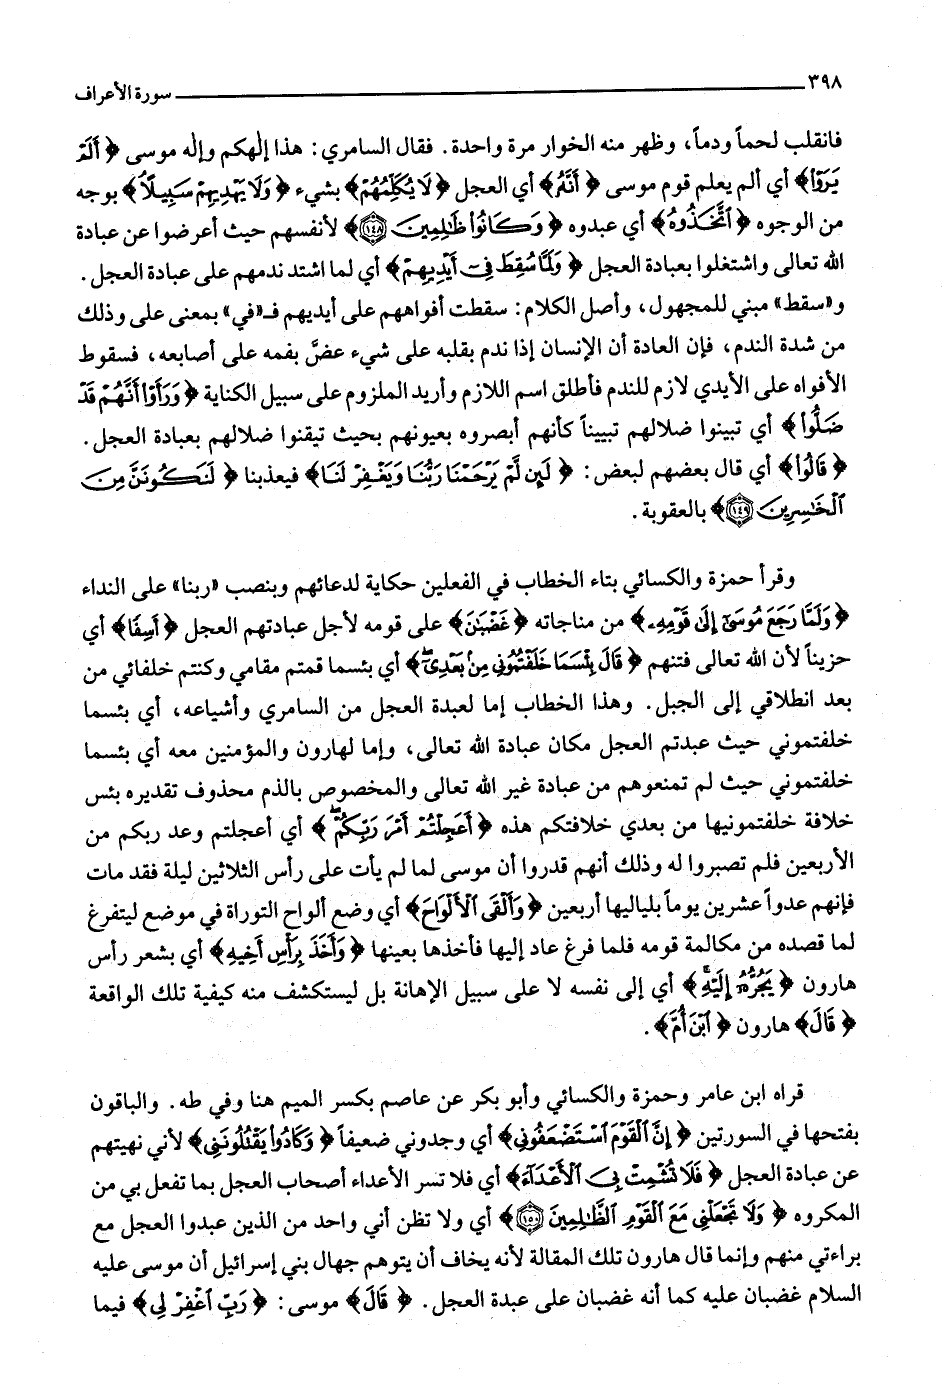 ٣٩٨ سورة الأعراف
فانقلب لحماً ودماً، وظهر منه الخوار مرة واحدة. فقال السامري: هذا إلهكم وإله موسى ﴿أَلَمْ
يَرَوْا﴾ أي ألم يعلم قوم موسى ﴿أَنَّهُ﴾ أي العجل ﴿لَا يُكَلِّمُهُمْ﴾ بشيء ﴿وَلَا يَهْدِيهِمْ سَبِيلًا﴾ بوجه
من الوجوه ﴿ٱتَّخَذُوهُ﴾ أي عبدوه ﴿وَكَانُوا ظَٰلِمِينَ ١٤٨﴾ لأنفسهم حيث أعرضوا عن عبادة
الله تعالى واشتغلوا بعبادة العجل ﴿وَلَمَّا سُقِطَ فِي أَيْدِيهِمْ﴾ أي لما اشتد ندمهم على عبادة العجل.
و«سقط» مبني للمجهول، وأصل الكلام: سقطت أفواههم على أيديهم فـ«في» بمعنى على وذلك
من شدة الندم، فإن العادة أن الإنسان إذا ندم بقلبه على شيء عضَّ بفمه على أصابعه، فسقوط
الأفواه على الأيدي لازم للندم فأطلق اسم اللازم وأريد الملزوم على سبيل الكناية ﴿وَرَأَوْا أَنَّهُمْ قَدْ
ضَلُّوا﴾ أي تبينوا ضلالهم تبييناً كأنهم أبصروه بعيونهم بحيث تيقنوا ضلالهم بعبادة العجل.
﴿قَالُوا﴾ أي قال بعضهم لبعض: ﴿لَئِن لَّمْ يَرْحَمْنَا رَبُّنَا وَيَغْفِرْ لَنَا﴾ فيعذبنا ﴿لَنَكُونَنَّ مِنَ
ٱلْخَٰسِرِينَ ١٤٩﴾ بالعقوبة.
وقرأ حمزة والكسائي بتاء الخطاب في الفعلين حكاية لدعائهم وبنصب «ربنا» على النداء
﴿وَلَمَّا رَجَعَ مُوسَىٰ إِلَىٰ قَوْمِهِۦ﴾ من مناجاته ﴿غَضْبَٰنَ﴾ على قومه لأجل عبادتهم العجل ﴿أَسِفًا﴾ أي
حزيناً لأن الله تعالى فتنهم ﴿قَالَ بِئْسَمَا خَلَفْتُمُونِي مِنۢ بَعْدِيٓ﴾ أي بئسما قمتم مقامي وكنتم خلفائي من
بعد انطلاقي إلى الجبل. وهذا الخطاب إما لعبدة العجل من السامري وأشياعه، أي بئسما
خلفتموني حيث عبدتم العجل مكان عبادة الله تعالى، وإما لهارون والمؤمنين معه أي بئسما
خلفتموني حيث لم تمنعوهم من عبادة غير الله تعالى والمخصوص بالذم محذوف تقديره بئس
خلافة خلفتمونيها من بعدي خلافتكم هذه ﴿أَعَجِلْتُمْ أَمْرَ رَبِّكُمْ﴾ أي أعجلتم وعد ربكم من
الأربعين فلم تصبروا له وذلك أنهم قدروا أن موسى لما لم يأت على رأس الثلاثين ليلة فقد مات
فإنهم عدوا عشرين يوماً بلياليها أربعين ﴿وَأَلْقَى ٱلْأَلْوَاحَ﴾ أي وضع ألواح التوراة في موضع ليتفرغ
لما قصده من مكالمة قومه فلما فرغ عاد إليها فأخذها بعينها ﴿وَأَخَذَ بِرَأْسِ أَخِيهِ﴾ أي بشعر رأس
هارون ﴿يَجُرُّهُۥٓ إِلَيْهِ﴾ أي إلى نفسه لا على سبيل الإهانة بل ليستكشف منه كيفية تلك الواقعة
﴿قَالَ﴾ هارون ﴿ٱبْنَ أُمَّ﴾.
قراه ابن عامر وحمزة والكسائي وأبو بكر عن عاصم بكسر الميم هنا وفي طه. والباقون
بفتحها في السورتين ﴿إِنَّ ٱلْقَوْمَ ٱسْتَضْعَفُونِي﴾ أي وجدوني ضعيفاً ﴿وَكَادُوا يَقْتُلُونَنِي﴾ لأني نهيتهم
عن عبادة العجل ﴿فَلَا تُشْمِتْ بِيَ ٱلْأَعْدَآءَ﴾ أي فلا تسر الأعداء أصحاب العجل بما تفعل بي من
المكروه ﴿وَلَا تَجْعَلْنِي مَعَ ٱلْقَوْمِ ٱلظَّٰلِمِينَ ١٥٠﴾ أي ولا تظن أني واحد من الذين عبدوا العجل مع
براءتي منهم وإنما قال هارون تلك المقالة لأنه يخاف أن يتوهم جهال بني إسرائيل أن موسى عليه
السلام غضبان عليه كما أنه غضبان على عبدة العجل. ﴿قَالَ﴾ موسى: ﴿رَبِّ ٱغْفِرْ لِي﴾ فيما